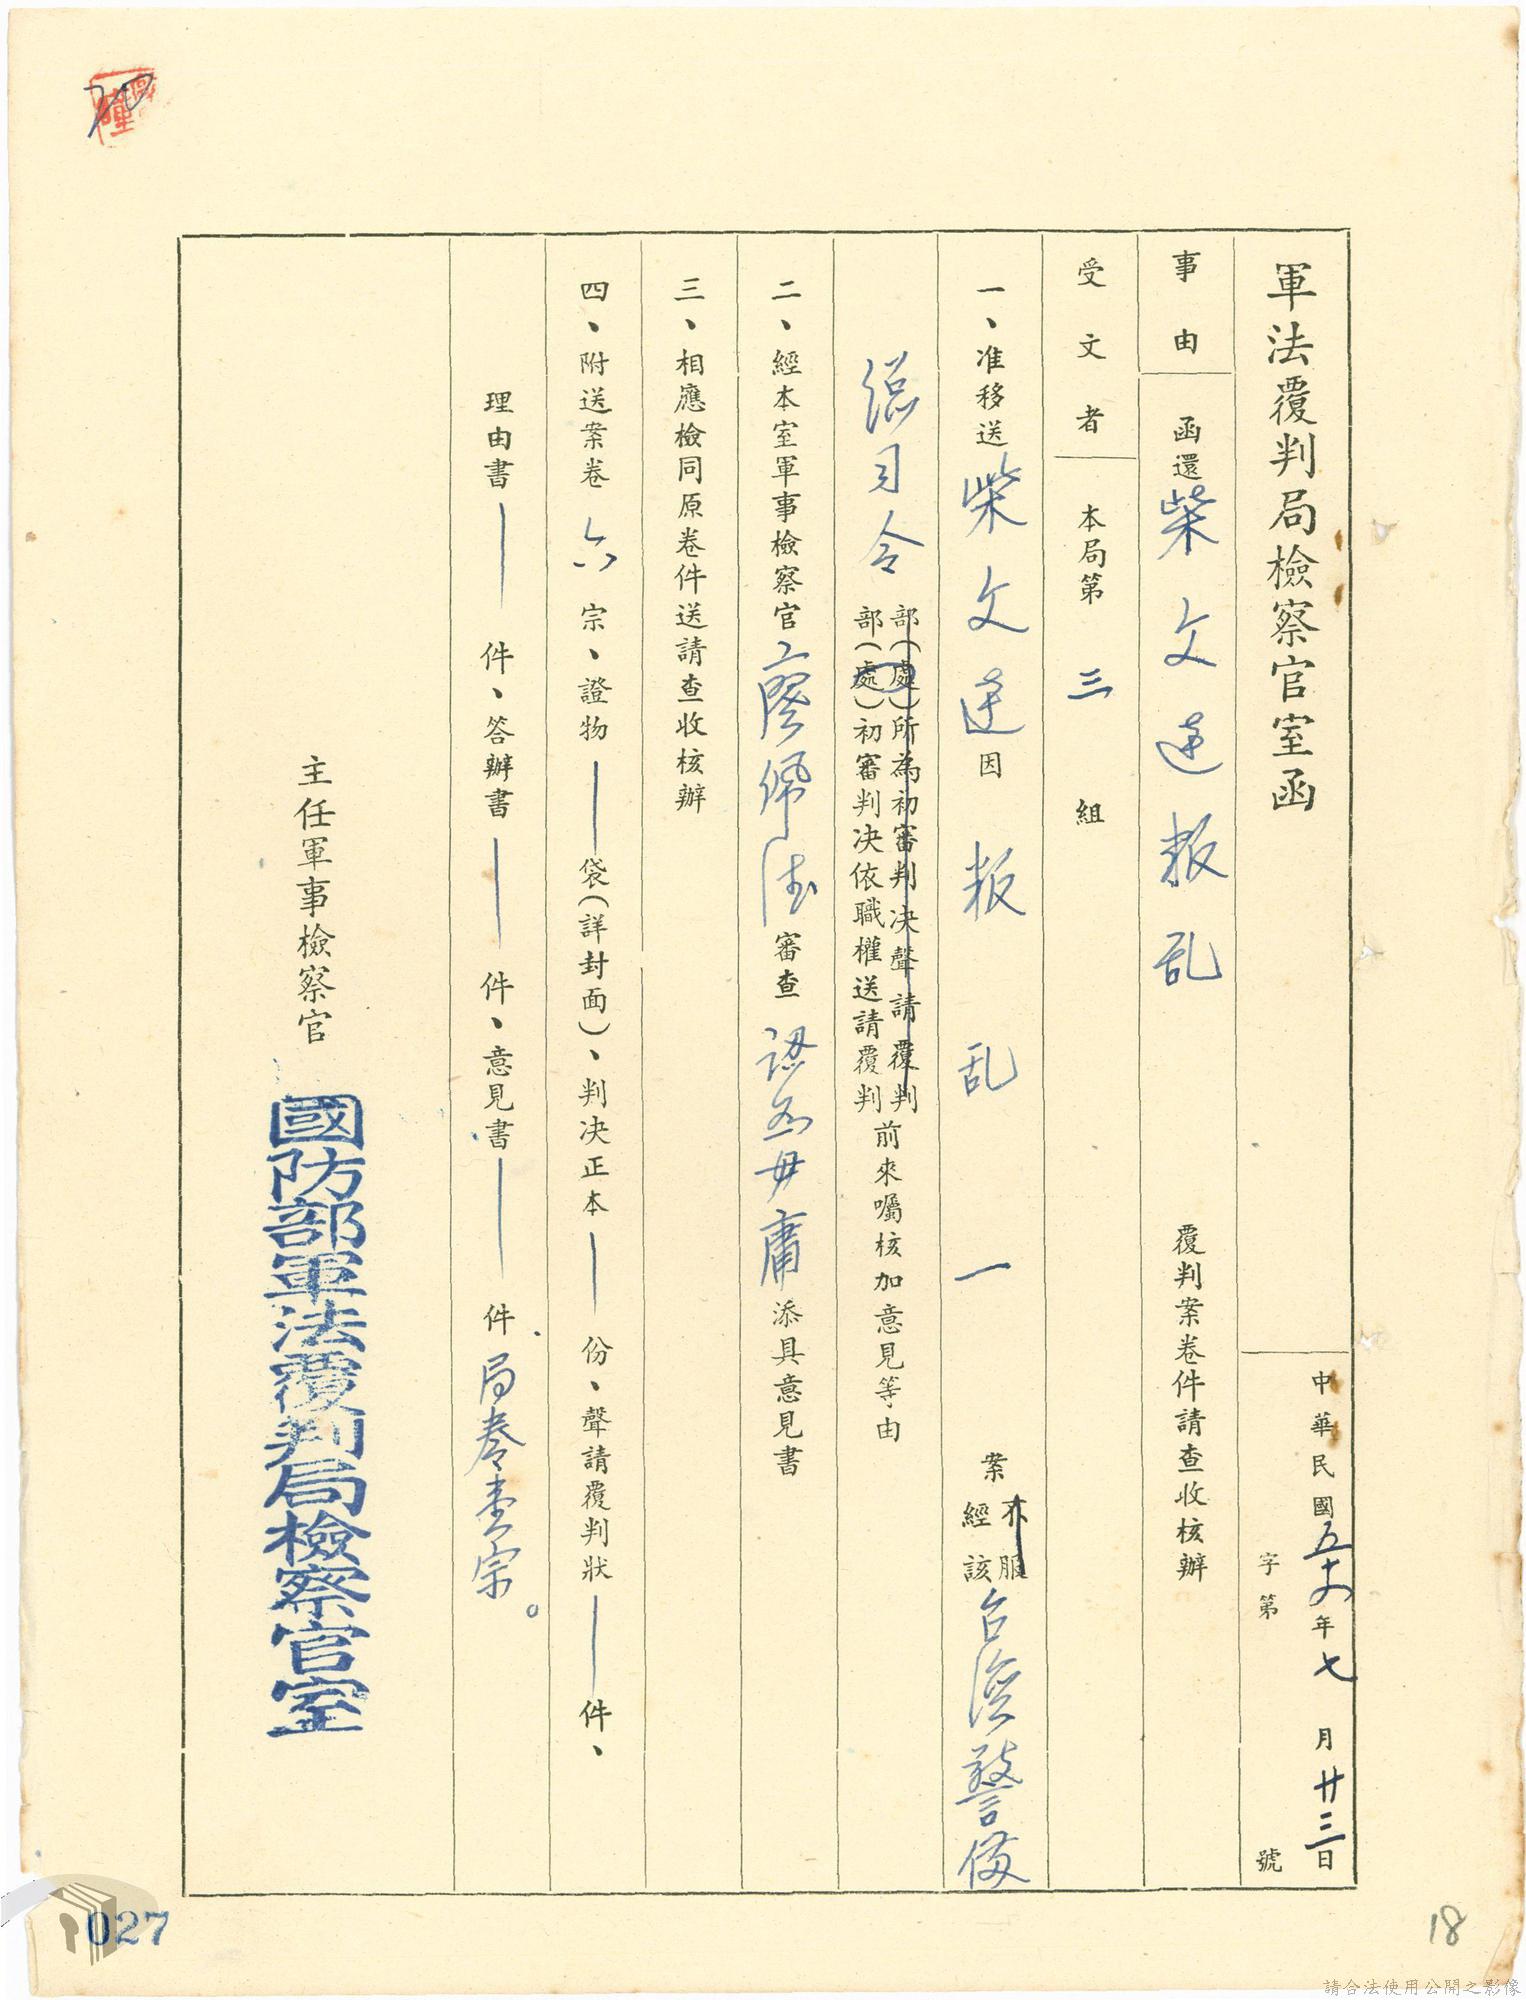 軍法覆判局檢察官室函
中華民國五十六年七月廿三日
字第 號
事由 函還柴文達叛乱 覆判案卷件請查收核辦
受文者 本局第三組
一、准移送柴文達因叛乱一案不服經該台湾警備
總司令部(處)所為初審判决聲請覆判
部(處)初審判决依職權送請覆判前來囑核加意見等由
二、經本室軍事檢察官廖佩 審查認為毋庸添具意見書
三、相應檢同原卷件送請查收核辦
四、附送案卷六宗、證物—袋(詳封面)、判决正本—份、聲請覆判狀—件、
理由書—件、答辦書—件、意見書—件 局卷壹宗。
主任軍事檢察官
國防部軍法覆判局檢察官室
027
18
請合法使用公開之影像